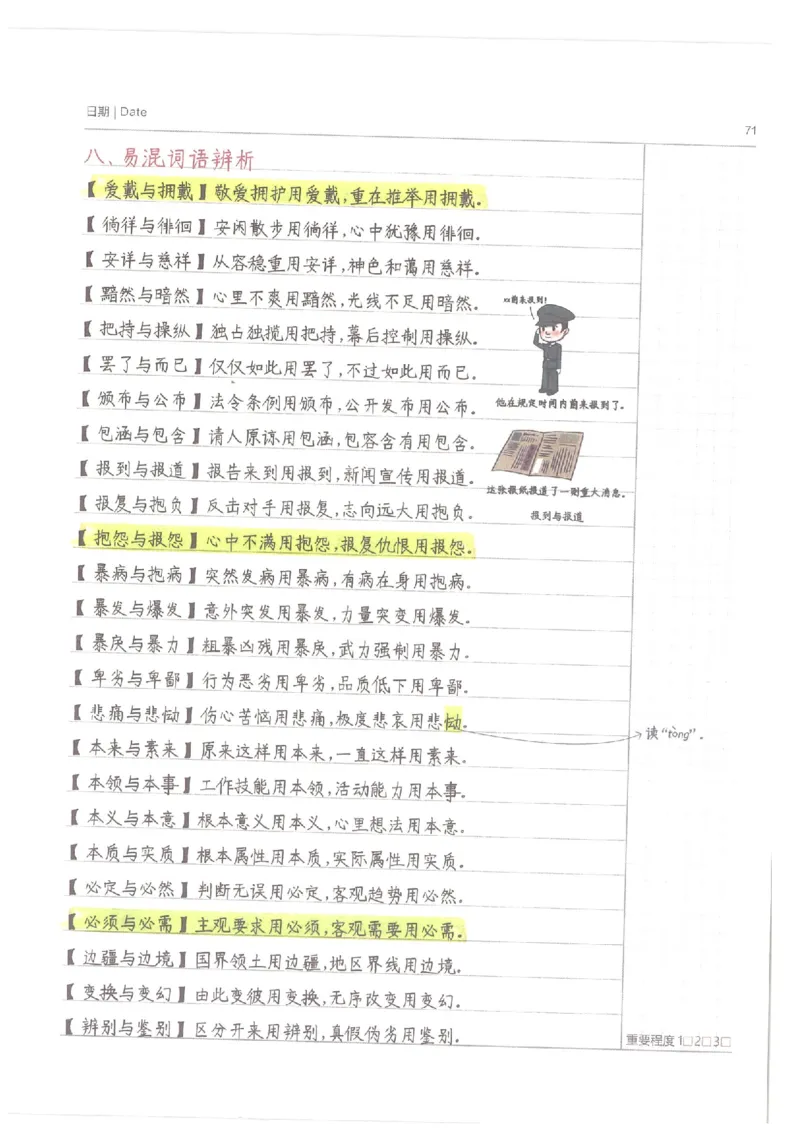 日期 | Date
71
八、易混词语辨析
【爱戴与拥戴】敬爱拥护用爱戴,重在推举用拥戴。
【徜徉与徘徊】安闲散步用徜徉,心中犹豫用徘徊。
【安详与慈祥】从容稳重用安详,神色和蔼用慈祥。
【黯然与暗然】心里不爽用黯然,光线不足用暗然。
【把持与操纵】独占独揽用把持,幕后控制用操纵。
【罢了与而已】仅仅如此用罢了,不过如此用而已。
【颁布与公布】法令条例用颁布,公开发布用公布。
【包涵与包含】请人原谅用包涵,包容含有用包含。
【报到与报道】报告来到用报到,新闻宣传用报道。
【报复与抱负】反击对手用报复,志向远大用抱负。
【抱怨与报怨】心中不满用抱怨,报复仇恨用报怨。
【暴病与抱病】突然发病用暴病,有病在身用抱病。
【暴发与爆发】意外突发用暴发,力量突变用爆发。
【暴戾与暴力】粗暴凶残用暴戾,武力强制用暴力。
【卑劣与卑鄙】行为恶劣用卑劣,品质低下用卑鄙。
【悲痛与悲恸】伤心苦恼用悲痛,极度悲哀用悲恸。
【本来与素来】原来这样用本来,一直这样用素来。
【本领与本事】工作技能用本领,活动能力用本事。
【本义与本意】根本意义用本义,心里想法用本意。
【本质与实质】根本属性用本质,实际属性用实质。
【必定与必然】判断无误用必定,客观趋势用必然。
【必须与必需】主观要求用必须,客观需要用必需。
【边疆与边境】国界领土用边疆,地区界线用边境。
【变换与变幻】由此变彼用变换,无序改变用变幻。
【辨别与鉴别】区分开来用辨别,真假伪劣用鉴别。
xx前来报到!
他在规定时间内前来报到了。
这张报纸报道了一则重大消息。
报到与报道
读“tòng”.
重要程度 1□2□3□